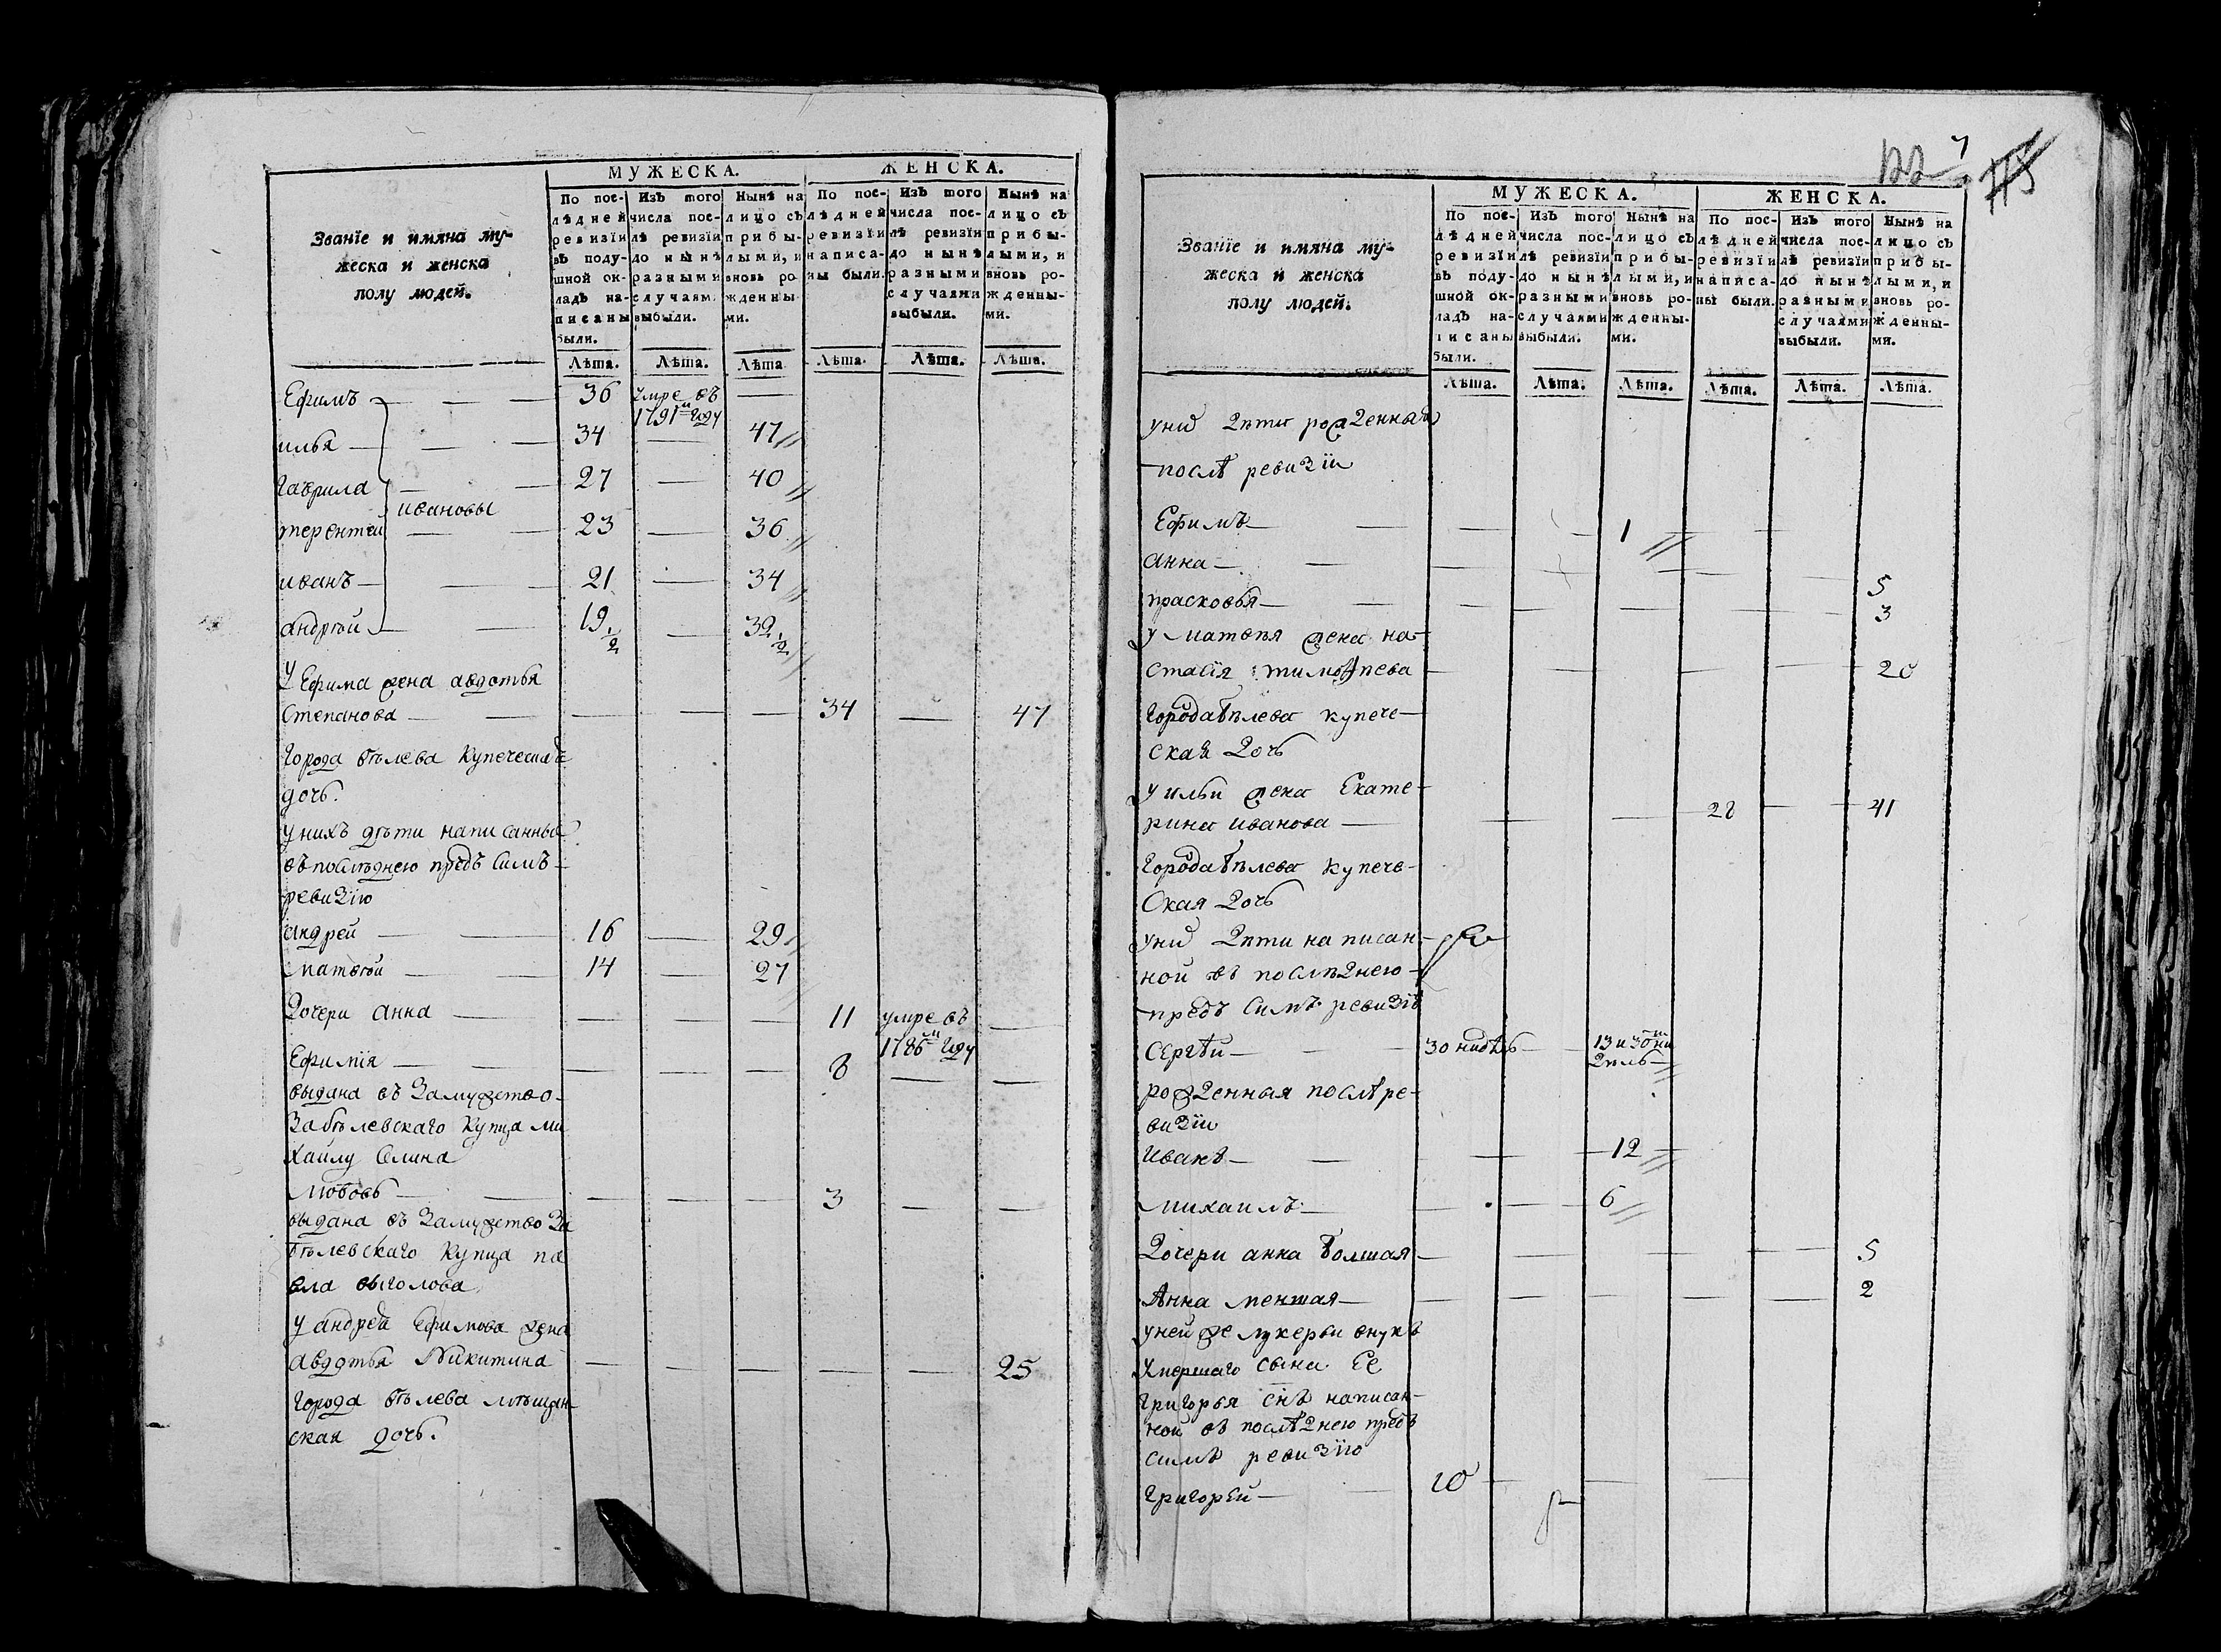 МУЖЕСКА. ЖЕНСКА.
Званїе и имяна му-
жеска и женска
полу людей.
По пос-
лѣдней
ревизїи
въ поду-
шной ок-
ладъ на-
писаны
были.
Изъ того
числа пос-
лѣ ревизїи
до нынѣ
разными
случаям.
выбыли.
Нынѣ на
лицо съ
прибы-
лыми, и
вновь ро
жденны
ми.
По пос-
лѣдней
ревизїи
написа-
ны были.
Изъ того
числа пос-
лѣ ревизїи
до нынѣ
разными
случаями
выбыли.
Нынѣ на
лицо съ
прибы-
лыми, и
вновь ро-
жденны-
ми.
Лѣта. Лѣта. Лѣта Лѣта. Лѣта. Лѣта.
Ефимъ 36 умре въ
1791 м году
илья 34 47
гаврила 27 40
ивановы
терентей 23 36
иванъ 21 34
андрей 19 1/2 32 1/2
У Ефима жена авдотья
Степанова 34 47
города бѣлева купеческая
дочь.
у нихъ дѣти написанныя
въ последнею предъ симъ
ревизїю
андрей 16 29
матвей 14 27
Дочери анна 11 умре въ
1786 м году
Ефимїя 8
выдана въ замужетво
за бѣлевскаго купца ми
хайлу
любовь 3
выдана въ замужетво за
бѣлевскаго купца па
вла
у андрея Ефимова жена
авдотья Никитина 25
города бѣлева мѣщан
ская дочь.
122
115
МУЖЕСКА. ЖЕНСКА.
Званїе и имяна му-
жеска и женска
полу людей.
По пос-
лѣдней
ревизїи
въ поду-
шной ок-
ладъ на-
писаны
были.
Изъ того
числа пос-
лѣ ревизїи
до нынѣ
разными
случаями
выбыли.
Нынѣ на
лицо съ
прибы-
лыми, и
вновь ро-
жденны-
ми.
По пос-
лѣдней
ревизїи
написа-
ны были.
Изъ того
числа пос-
лѣ ревизїи
до нынѣ
разными
случаями
выбыли.
Нынѣ на
лицо съ
прибы-
лыми, и
вновь ро-
жденны-
ми.
Лѣта. Лѣта. Лѣта. Лѣта. Лѣта. Лѣта.
у них дѣти рожденныя
послѣ ревизїи
Ефимъ 1
анна 5
прасковья 3
у матвея жена на-
стасїя тимофѣева 20
города бѣлева купече-
ская дочь
у ильи жена Екате-
рина иванова 28 41
города бѣлева купече-
ская дочь
у них дѣти написан-
ной въ послѣднею
предъ симъ ревизїю
Сергѣй 30 нидѣль 13 и 30 ни
дѣль
рожденныя послѣ ре-
визїи
Иванъ 12
михаилъ 6
Дочери анна болшая 5
Анна меншая 2
у ней же лукерьи внукъ
умершаго сына Ее
григорья снъ написан-
ной въ послѣднею предъ
симъ ревизїю
григорей 10